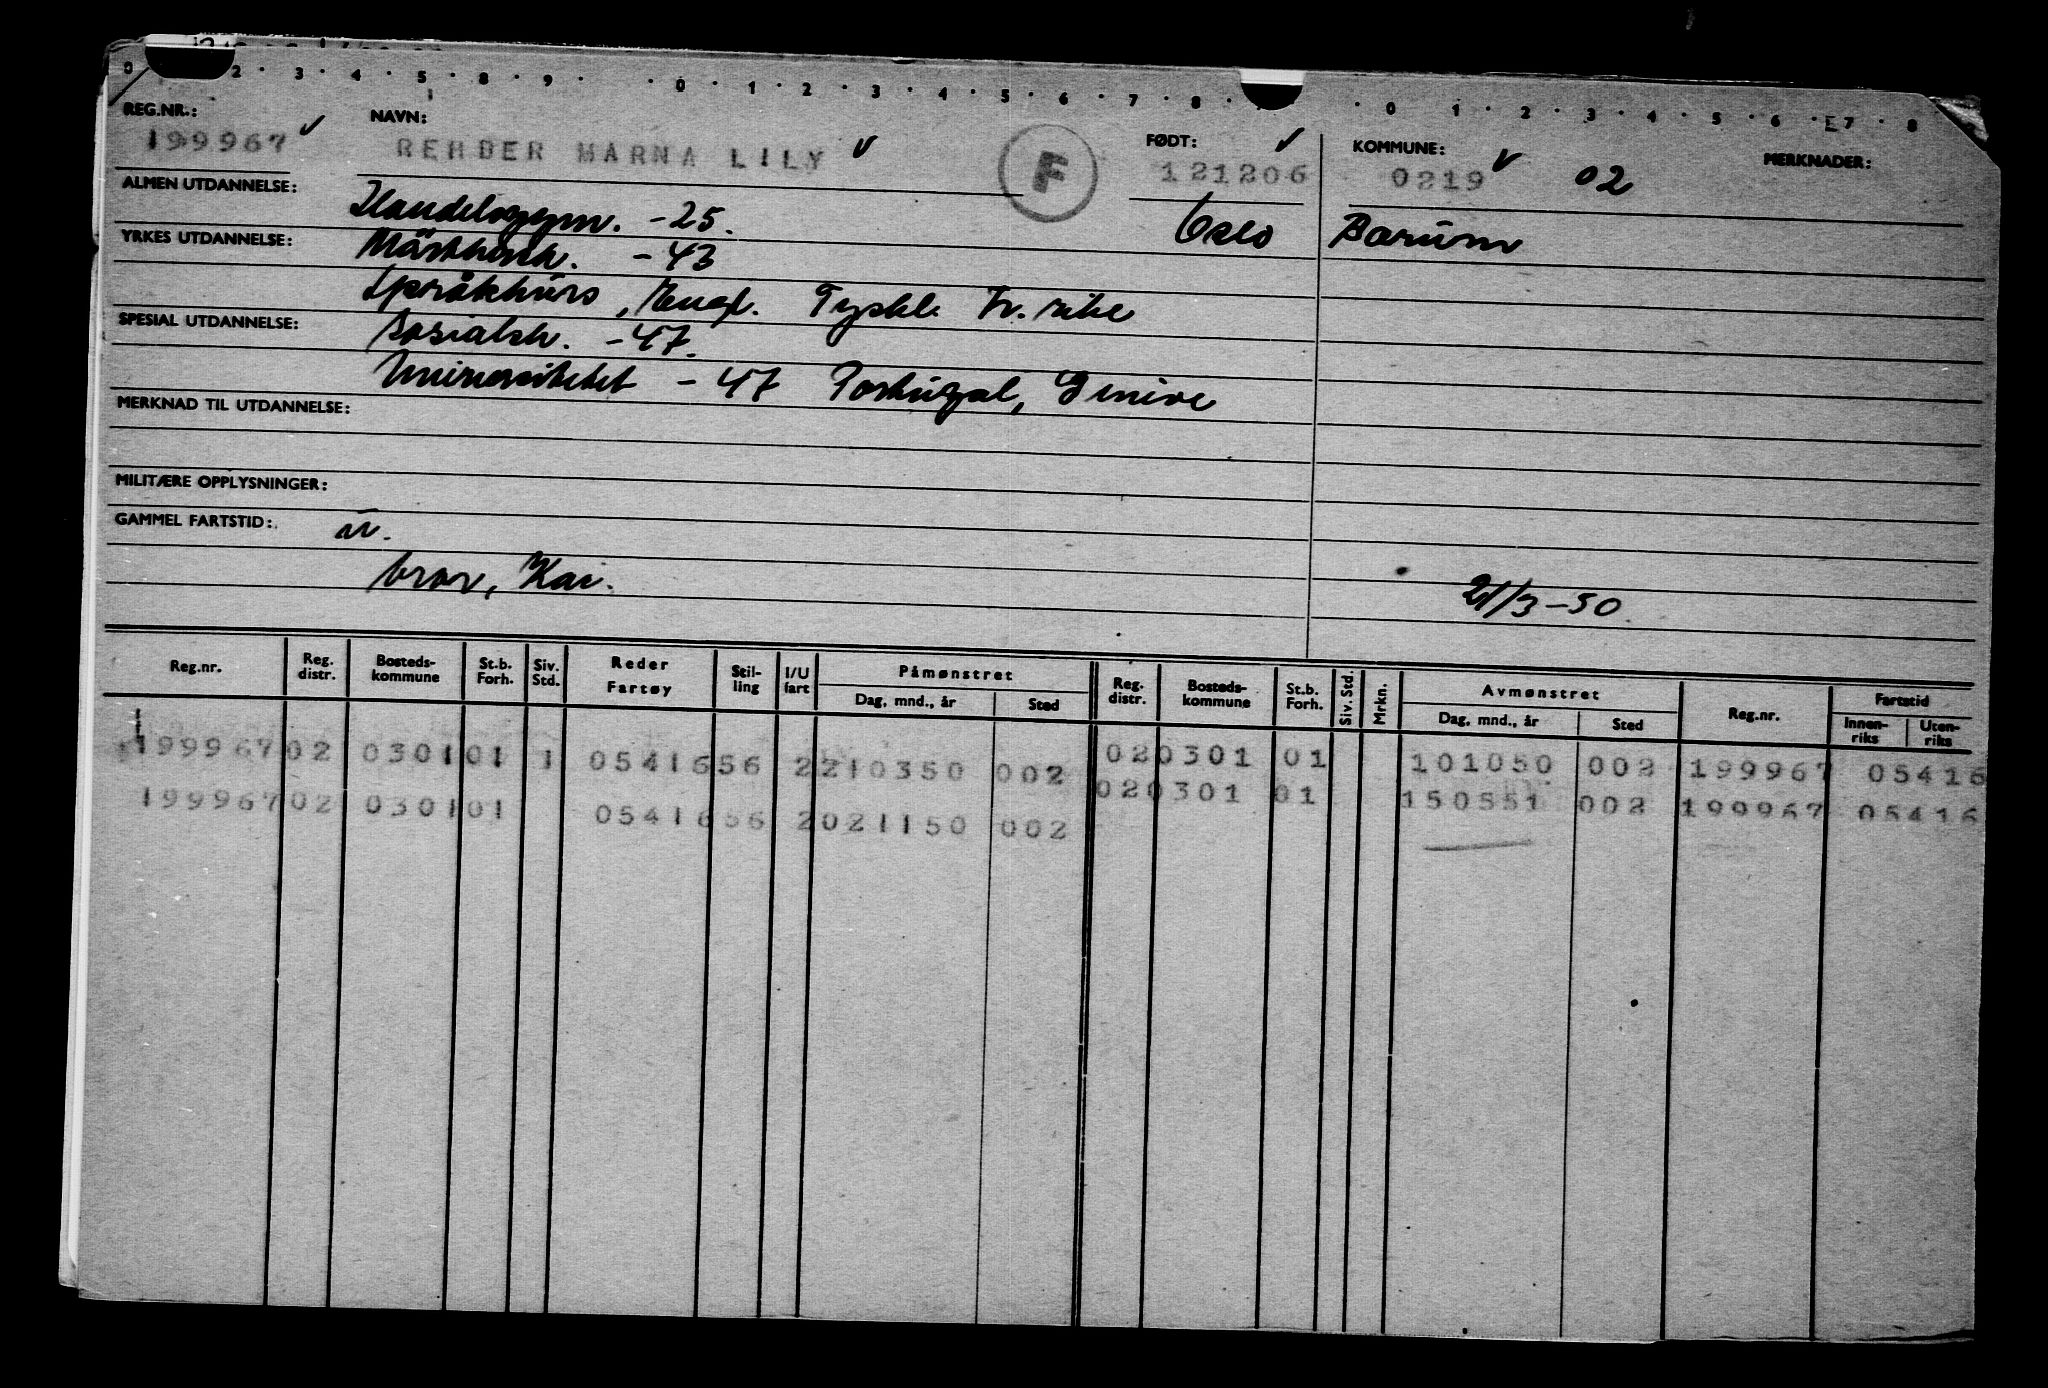 0 2 · 3 · 4 · 5 · 8 · 9 · · 0 · 1 · 2 · 3 · 4 · 5 · 6 · 7 · 8 · · 0 1 · 2 · 3 · 4 · 5 · 6 · E7 · 8
REG.NR.: NAVN: FØDT: KOMMUNE: MERKNADER:
199967 REHDER MARNA LILY F 121206 0219 02
ALMEN UTDANNELSE: Handelsgymn. -25. Oslo Bærum
YRKES UTDANNELSE: -43
Språkkurs, Engl. Tyskl.
SPESIAL UTDANNELSE: Sosialsk. -47.
Universitetet -47 Portugal, Geneve
MERKNAD TIL UTDANNELSE:
MILITÆRE OPPLYSNINGER:
GAMMEL FARTSTID:
bror, Kai. 21/3-50
Reg.nr. Reg. distr. Bosteds-kommune St.b. Forh. Siv. Std. Reder Fartøy Stil-ling I/U fart Påmønstret Reg. distr. Bosteds-kommune St.b. Forh. Siv. Std. Mrkn. Avmønstret Reg.nr. Fartstid
Dag, mnd., år Sted Dag, mnd., år Sted Innen-riks Uten-riks
199967 02 0301 01 1 05416 56 2 210350 002 02 0301 01 101050 002 199967 05416
199967 02 0301 01 05416 56 2 021150 002 02 0301 01 150551 002 199967 05416